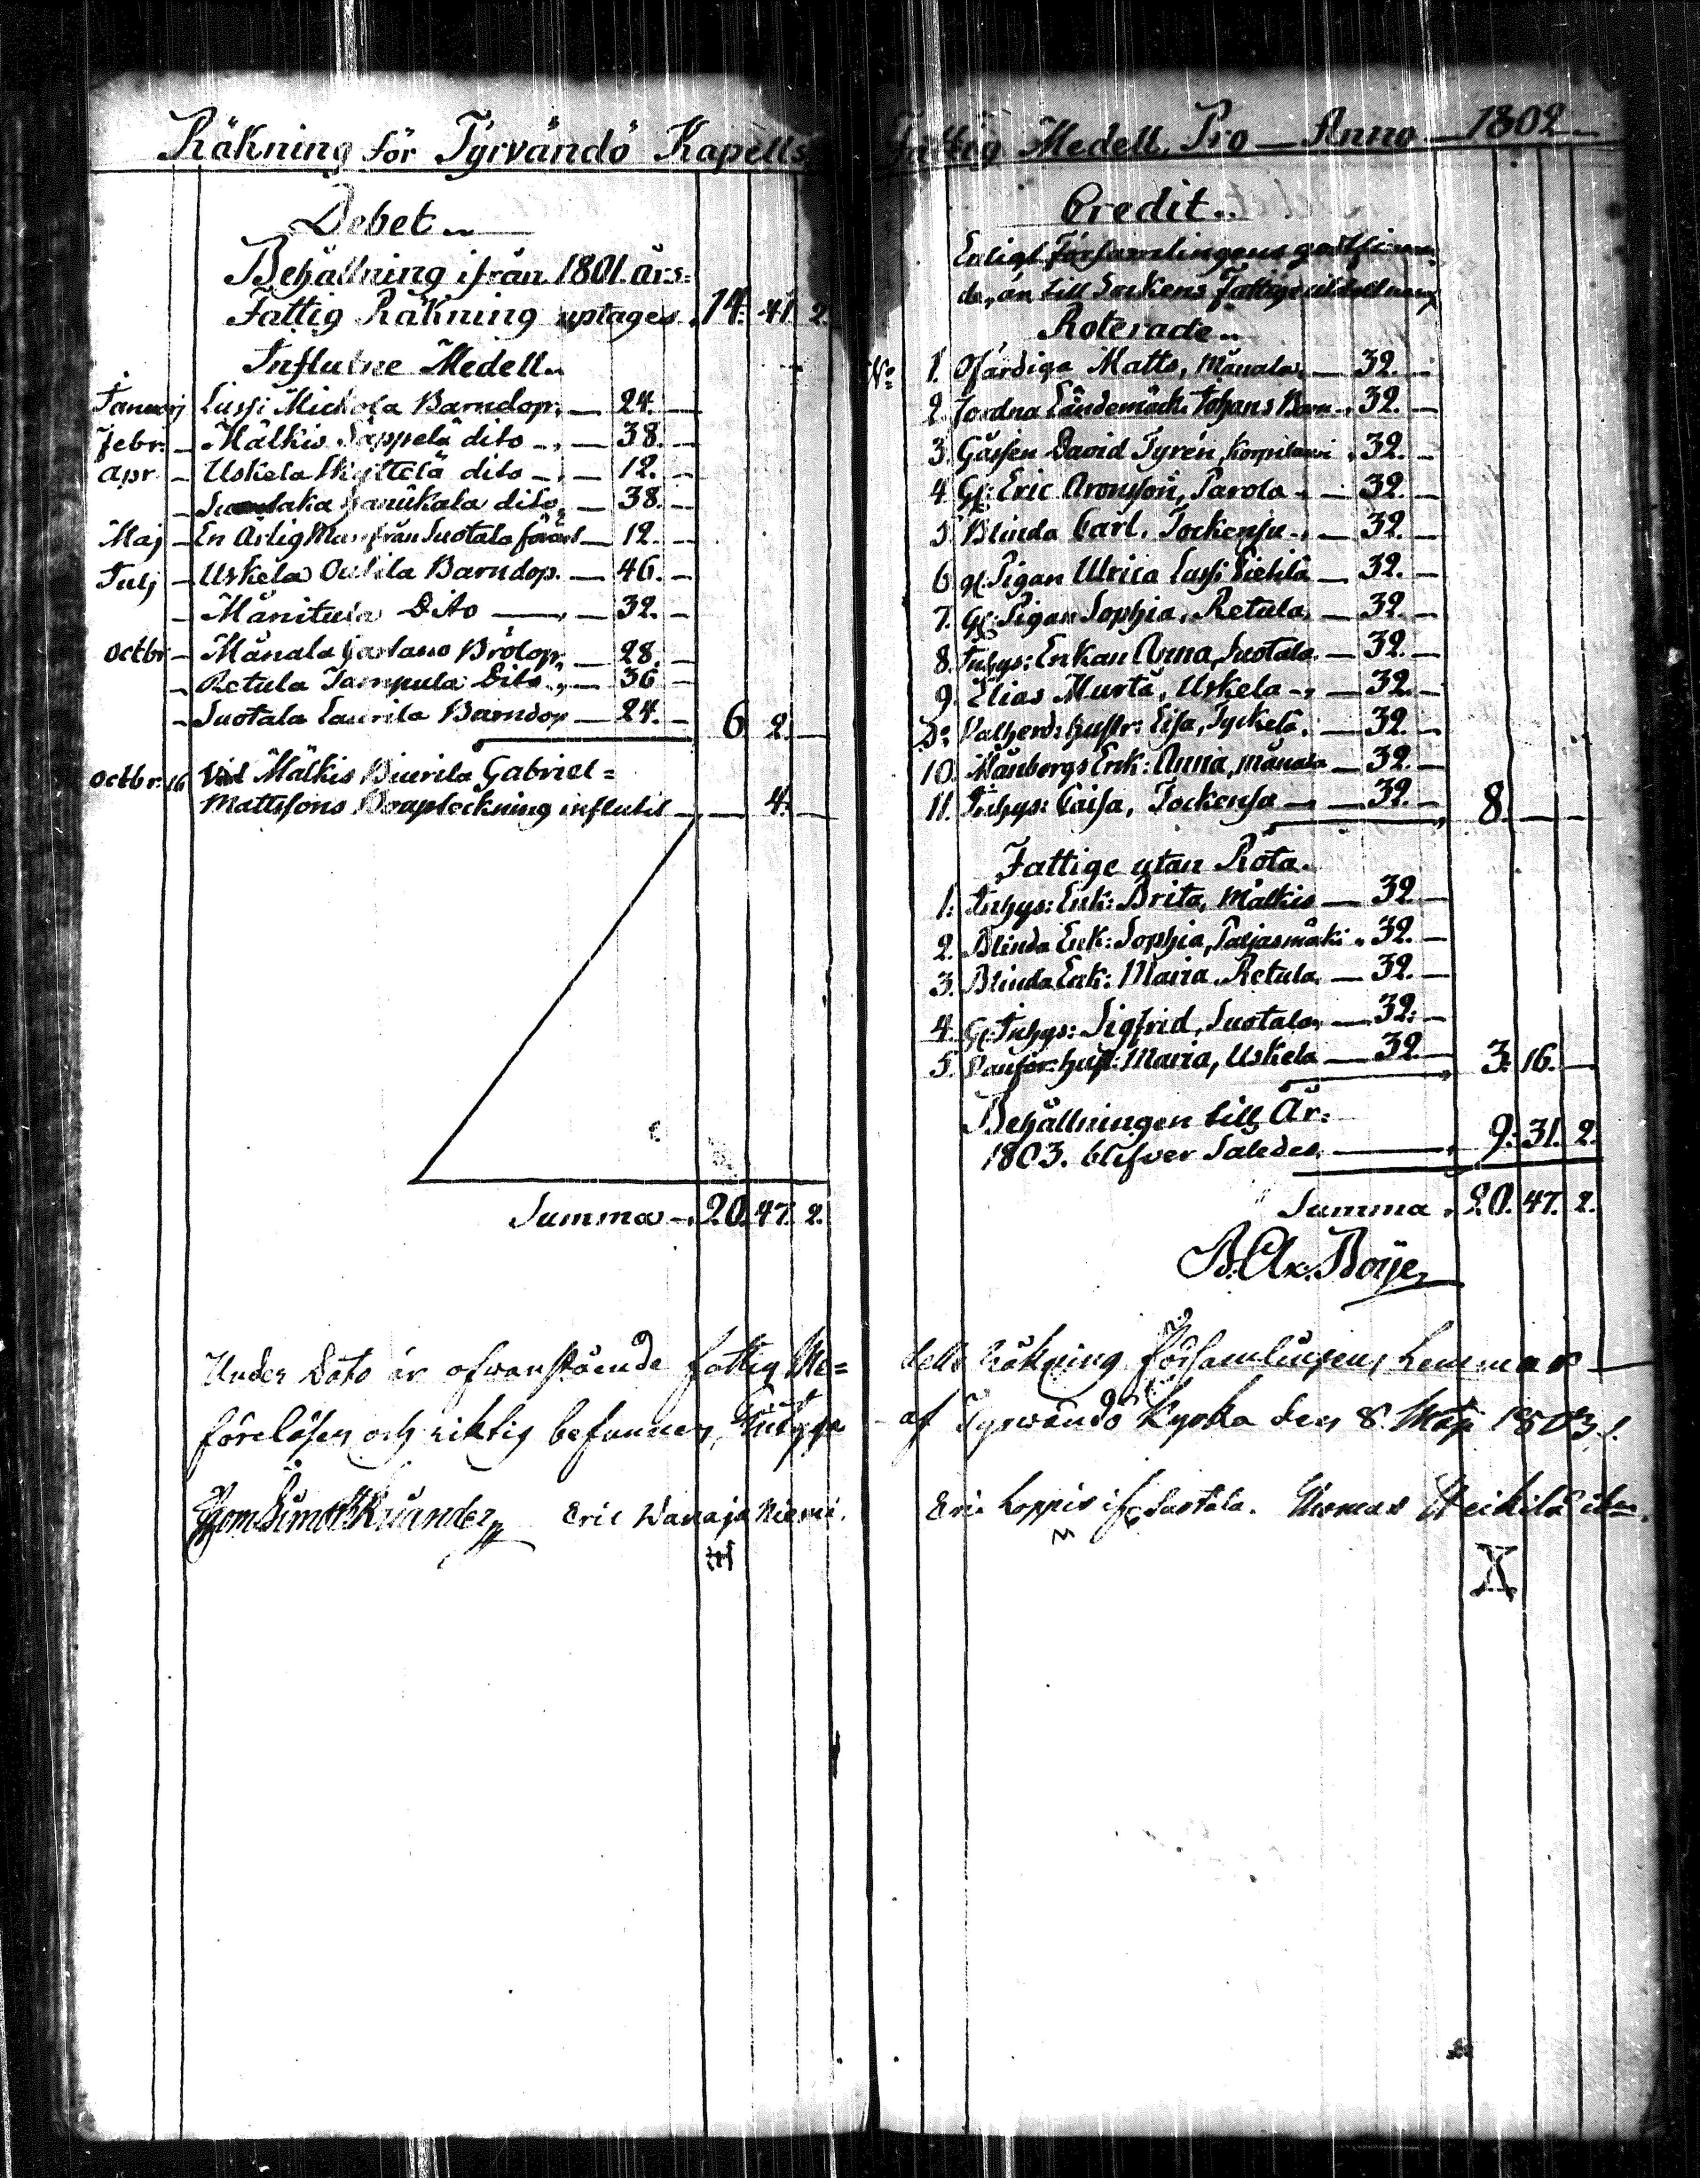 Räkning för Tyrvändö Kapells
Debet
Behållning ifrån 1801. års=
Fattig Räkning uptages 14. 41. 2.
Influtne Medell.
Januarj Lussi Mickola Barndop. — 24. —
Febr: — Mälkis Säppelä dito — 38. —
Apr — Uskela Skyttelä dito — 12. —
— Hanukala dito — 38. —
Maj — En Ärlig Man från Suotala — 12. —
Julj — Uskela Outila Barndop. — 46. —
— Mänitula Dito — 32. —
Octbr — Mänala Brölop — 28. —
— Retula Tampula Dito — 36 —
— Suotala Laurila Barndop — 24. — 6. 2. —
Octbr: 16 Vid Mälkis Biurila Gabriel=
Mattssons influtit — 4. —
Summa 20. 47. 2.
Under Dato är ofwanstående fattig Me=
föreläsen och riktig befunnen,
Eric Wanajaniemi.
Fattig Medell, Pro — Anno — 1802 —
Credit
Enligt Församlingens godtfinnan=
de, än till Sockens Fattige utdelt
Roterade
No 1. Ofärdiga Matts, Mänala — 32. —
2. Johans Barn 32. —
3. Gässen David Tyrén, 32. —
4. Gl: Eric Aronsson, Parola — 32. —
5. Blinda Carl, Tockensu — 32. —
6. gl. Pigan Ulrica Lussi — 32. —
7. Gl: Pigan Sophia, Retula, — 32. —
8. Inhys: Enkan Anna, Suotala. — 32. —
9. Elias Murta, Uskela — 32. —
Do Hustr: Lisa, — 32. —
10. Månbergs Enk: Anna, Mänala — 32. —
11. Inhys: Caisa, Tockensu — 32. — 8. — —
Fattige utan Rota.
1. Inhys: Enk: Brita, Mälkis — 32 —
2. Blinda Enk: Sophia, Paljasmäki 32. —
3. Blinda Enk: Maria, Retula — 32. —
4. Gl. Inhys: Sigfrid, Suotala, — 32. —
5. Hust: Maria, Uskela — 32 — 3. 16. —
Behållningen till År:
1803. blifver Således — 9. 31. 2.
Summa 20. 47. 2.
B. Ax. Boije
dells räkning Församlingens
af Tyrwändö Kyrka den 8. Maji 1803.
Eric Loppis ifr Suotala. Thomas Heikilä
X